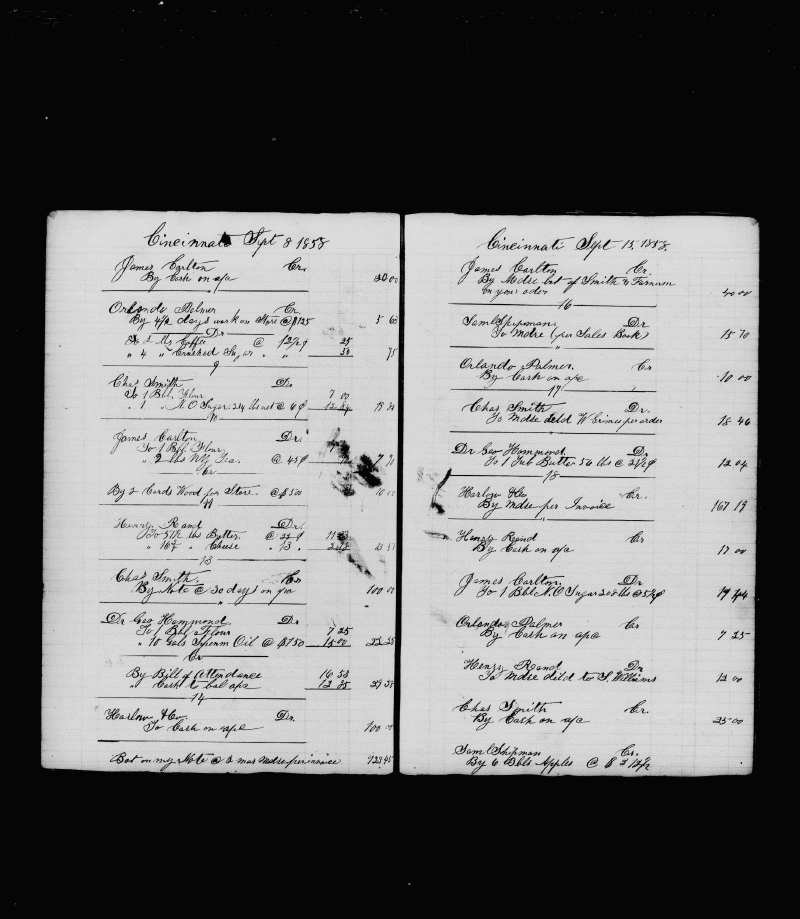 Cincinnati Sept 8 1858
James Carlton Cr.
By Cash on a/c 20 00
Orlando Palmer Cr
By 4 1/2 days work on Store @ $125 5 63
Dr
To 2 lbs Coffee @ 12 1/2 ¢ 25
" 4 " Crushed Sugar " " 50 75
9
Chas Smith Dr
To 1 Bbl. Flour 7 00
" 1 " N.O Sugar 214 lbs net @ 6 ¢
James Carlton Dr.
To 1 Bbl Flour
" 2 lbs Tea @ 45 ¢
Cr
By 2 Cords Wood for Store @ $5.00 10 00
11
Henry Rand Dr.
To 51 1/2 lbs Butter @ 22 ¢
" 16 " Cheese " 13 "
13
Chas Smith Cr
By Note @ 30 days on a/c 100 00
"
Dr Geo Hammond Dr
To 1 Bbl Flour 7 25
" 10 Gals Sperm Oil @ $1.50 15 00 22 25
Cr
By Bill of Attendance
" Cash to bal a/c
14
Harlow & Co. Dr.
To Cash on a/c 100
Bot on my Note @ 3 mos Mdse per invoice
Cincinnati Sept 15, 1858.
James Carlton Cr.
By Mdse bot of Smith & Farnum
on your order 40 00
16
Saml Shipman Dr
To Mdse (per Sales Book) 15 70
"
Orlando Palmer. Cr
By Cash on a/c 10 00
17
Chas Smith Dr.
To Mdse deld W Grimes per order 18 46
"
Dr Geo Hammond Dr
To 1 Tub Butter 56 lbs @ 21 1/2 ¢ 12 04
18
Harlow & Co Cr.
By Mdse per Invoice 167 19
"
Henry Rand Cr
By Cash on a/c 17 00
James Carlton Dr
To 1 Bbl N.O Sugar
Orlando Palmer Cr
By Cash on a/c 7 25
Henry Rand Dr
To Mdse dild to S. Williams 12 00
Chas Smith Cr.
By Cash on a/c 25 00
Saml Shipman Cr.
By 6 Bbls Apples @